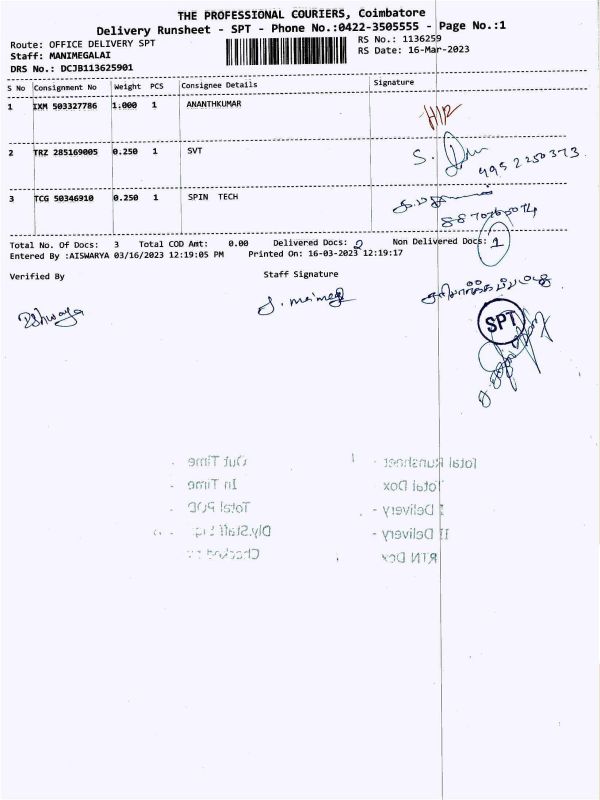 THE PROFESSIONAL COURIERS, Coimbatore
Delivery Runsheet - SPT - Phone No.:0422-3505555 - Page No.:1
Route: OFFICE DELIVERY SPT
RS No.: 1136259
Staff: MANIMEGALAI
RS Date: 16-Mar-2023
DRS No.: DCJB113625901
S No Consignment No Weight PCS Consignee Details Signature
1 IXM 503327786 1.000 1 ANANTHKUMAR
2 TRZ 285169005 0.250 1 SVT S.
9952250373
3 TCG 50346910 0.250 1 SPIN TECH
Total No. Of Docs: 3 Total COD Amt: 0.00 Delivered Docs: 2 Non Delivered Docs: 1
Entered By :AISWARYA 03/16/2023 12:19:05 PM Printed On: 16-03-2023 12:19:17
Verified By Staff Signature
SPT
Total Runsheet - Out Time -
Total Dox In Time -
I Delivery - Total POD -
II Delivery - Dly.Staff
RTN Dox Checked by